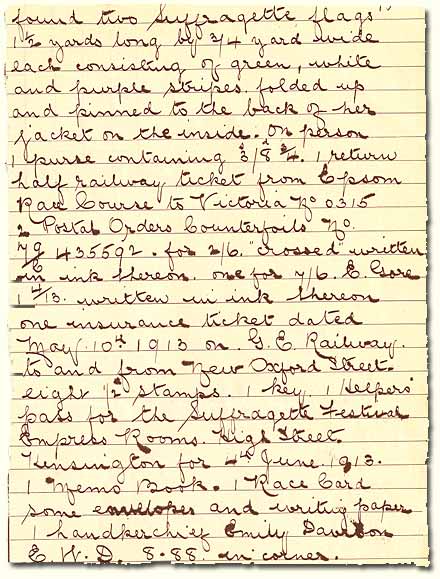 found two Suffragette flags"
1½ yards long by 3/4 yard wide
each consisting of green, white
and purple stripes folded up
and pinned to the back of her
jacket on the inside. On person
1 purse containing 3/8 ¾. 1 return
half railway ticket from Epsom
Race Course to Victoria No 0315
2 Postal Orders Counterfoils No.
435592. for 2/6. "crossed" written
in ink thereon. one for 7/6. E. Gore
1 4/13. written in ink thereon
one insurance ticket dated
May 10th 1913 on G.E. Railway.
to and from New Oxford Street
eight ½d stamps. 1 key. 1 Helpers'
pass for the Suffragette Festival
Empress Rooms. High Street
Kensington for 4th June. 1913.
1 Memo Book. 1 Race Card
some envelopes and writing paper
1 handkerchief Emily Davison
E. W. D. 8.88. in corner.